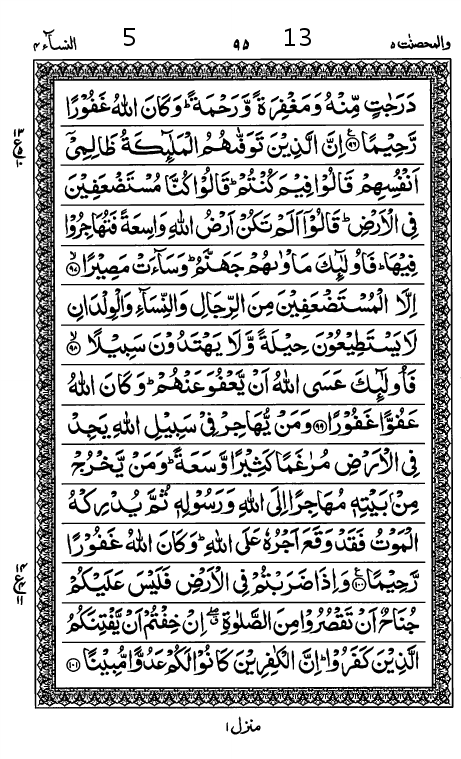 والمحصنٰت ٥ 13 ٩٥ 5 النسآء ٤
دَرَجٰتٍ مِّنْهُ وَمَغْفِرَةً وَّرَحْمَةً ؕ وَكَانَ اللّٰهُ غَفُوْرًا
رَّحِيْمًا ﴿٩٦﴾ اِنَّ الَّذِيْنَ تَوَفّٰىهُمُ الْمَلٰٓئِكَةُ ظَالِمِیْۤ
اَنْفُسِهِمْ قَالُوْا فِيْمَ كُنْتُمْ ؕ قَالُوْا كُنَّا مُسْتَضْعَفِيْنَ
فِى الْاَرْضِ ؕ قَالُوْۤا اَلَمْ تَكُنْ اَرْضُ اللّٰهِ وَاسِعَةً فَتُهَاجِرُوْا
فِيْهَا ؕ فَاُولٰٓئِكَ مَاْوٰىهُمْ جَهَنَّمُ ؕ وَسَآءَتْ مَصِيْرًا ۙ﴿٩٧﴾
اِلَّا الْمُسْتَضْعَفِيْنَ مِنَ الرِّجَالِ وَالنِّسَآءِ وَالْوِلْدَانِ
لَا يَسْتَطِيْعُوْنَ حِيْلَةً وَّلَا يَهْتَدُوْنَ سَبِيْلًا ۙ﴿٩٨﴾
فَاُولٰٓئِكَ عَسَى اللّٰهُ اَنْ يَّعْفُوَ عَنْهُمْ ؕ وَكَانَ اللّٰهُ
عَفُوًّا غَفُوْرًا ﴿٩٩﴾ وَمَنْ يُّهَاجِرْ فِىْ سَبِيْلِ اللّٰهِ يَجِدْ
فِى الْاَرْضِ مُرٰغَمًا كَثِيْرًا وَّسَعَةً ؕ وَمَنْ يَّخْرُجْ
مِنْۢ بَيْتِهٖ مُهَاجِرًا اِلَى اللّٰهِ وَرَسُوْلِهٖ ثُمَّ يُدْرِكْهُ
الْمَوْتُ فَقَدْ وَقَعَ اَجْرُهٗ عَلَى اللّٰهِ ؕ وَكَانَ اللّٰهُ غَفُوْرًا
رَّحِيْمًا ﴿١٠٠﴾ وَاِذَا ضَرَبْتُمْ فِى الْاَرْضِ فَلَيْسَ عَلَيْكُمْ
جُنَاحٌ اَنْ تَقْصُرُوْا مِنَ الصَّلٰوةِ ۖ اِنْ خِفْتُمْ اَنْ يَّفْتِنَكُمُ
الَّذِيْنَ كَفَرُوْا ؕ اِنَّ الْكٰفِرِيْنَ كَانُوْا لَكُمْ عَدُوًّا مُّبِيْنًا ﴿١٠١﴾
منزل ١